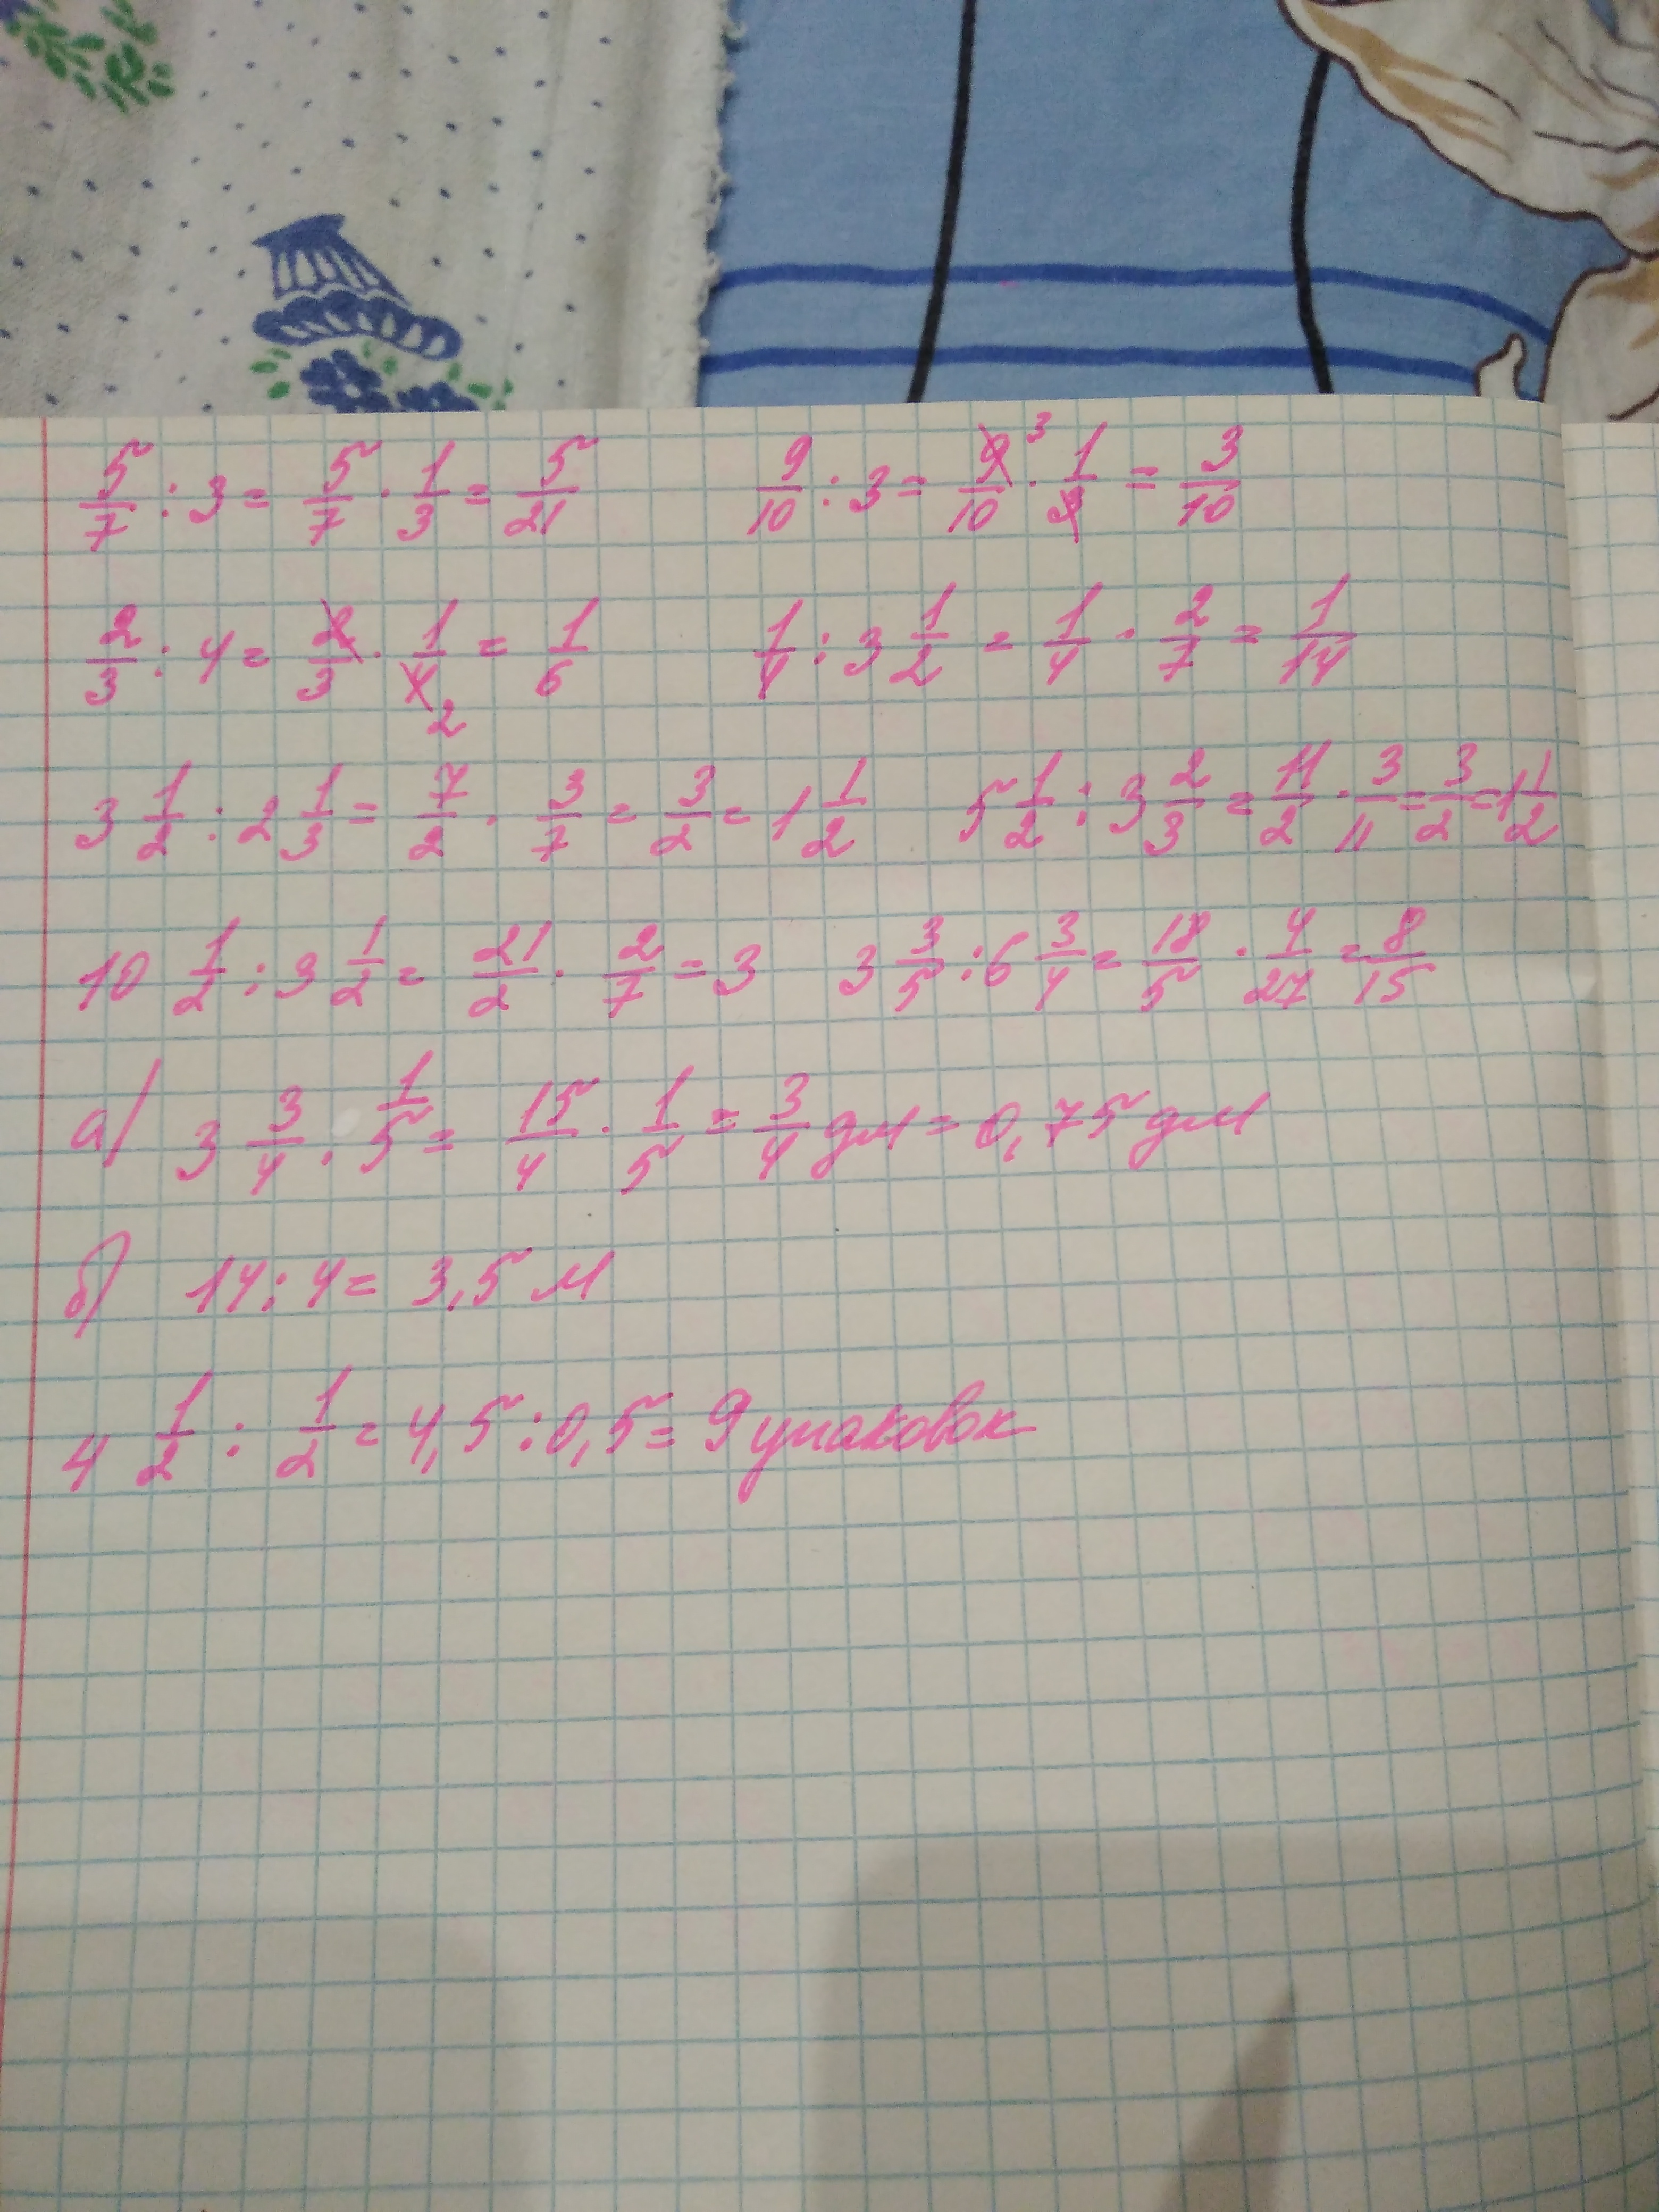 5/7 : 3 = 5/7 · 1/3 = 5/21 9/10 : 3 = 9/10 3 · 1/3 = 3/10
2/3 : 4 = 2/3 · 1/4 2 = 1/6 1/4 : 3 1/2 = 1/4 · 2/7 = 1/14
3 1/2 : 2 1/3 = 7/2 · 3/7 = 3/2 = 1 1/2 5 1/2 : 3 2/3 = 11/2 · 3/11 = 3/2 = 1 1/2
10 1/2 : 3 1/2 = 21/2 · 2/7 = 3 3 3/5 : 6 3/4 = 18/5 · 4/27 = 8/15
а) 3 3/4 : 1/5 = 15/4 · 1/5 = 3/4 дм = 0,75 дм
б) 14 : 4 = 3,5 м
4 1/2 : 1/2 = 4,5 : 0,5 = 9 упаковок